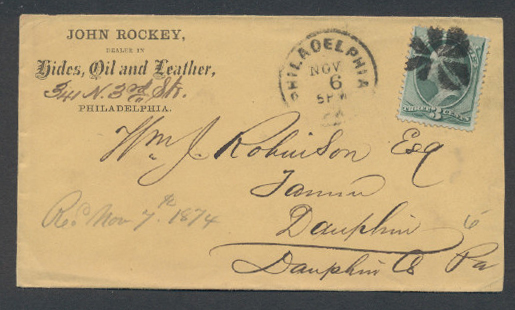 JOHN ROCKEY,
DEALER IN
Hides, Oil and Leather,
341 N. 3rd St.
PHILADELPHIA.
PHILADELPHIA
NOV
6
5PM
THREE 3 CENTS
Wm J. Robinson Esq
Tanner
Dauphin
Dauphin Co Pa
Rec. Nov 7th 1874